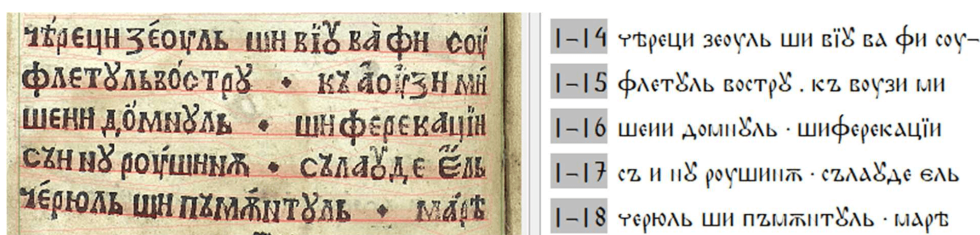 чѣрецн зеоуль шн вїꙋ ва фн соу
флетꙋль востру • къ аоузн мн
шенн домнꙋль • шн ферекаціин
сън нꙋ роушннѫ • сълаꙋде ель
черюль шн пъмѫнтꙋль • марѣ
1-14 чѣреци зеоуль ши вїꙋ ва фи соу-
1-15 флетꙋль вострꙋ . къ воузи ми
1-16 шеии домнꙋль · шиферекацїи
1-17 съ и нꙋ роушинѫ · сълаꙋде єль
1-18 черюль ши пъмѫнтꙋль · марѣ